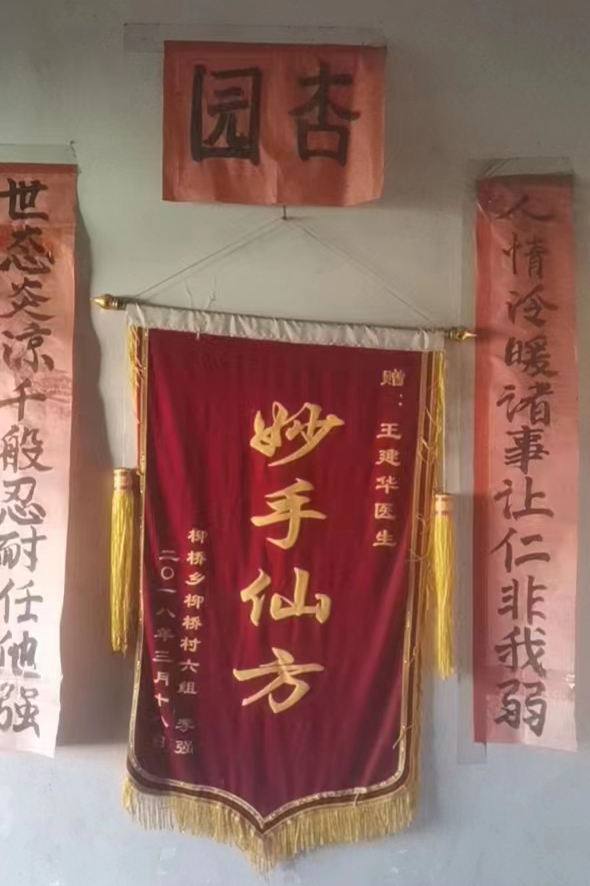 杏园
人情冷暖诸事让仁非我弱
赠：王建华医生
妙手仙方
柳桥乡柳桥村六组 李强
二〇一八年三月十八日
世态炎凉千般忍耐任他强